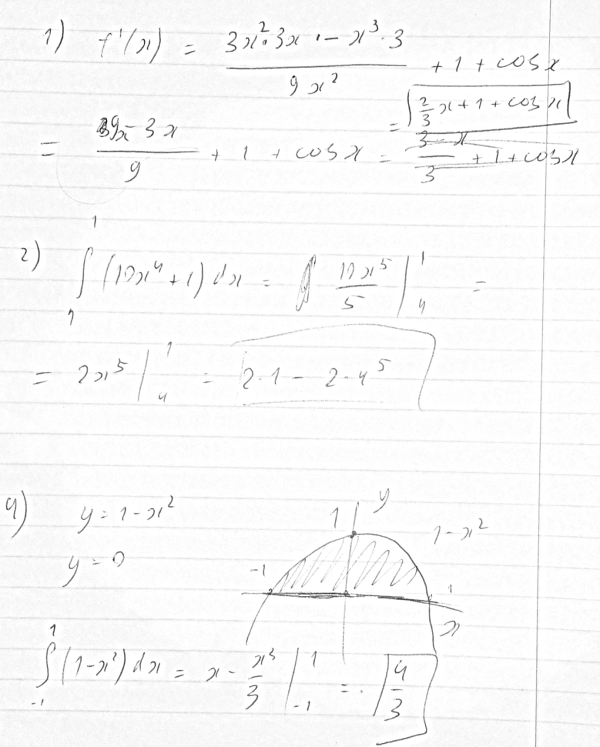 1) f'(x) = (3x²·3x - x³·3)/(9x²) + 1 + cos x
= (9x - 3x)/9 + 1 + cos x = 2/3 x + 1 + cos x
2) ∫₁¹ (10x⁴+1) dx = 10x⁵/5 |₄¹ =
= 2x⁵ |₄¹ = 2·1 - 2·4⁵
4) y = 1 - x²
y = 0
1 y 1 - x²
-1 1
x
∫₋₁¹ (1-x²) dx = x - x³/3 |₋₁¹ = 4/3